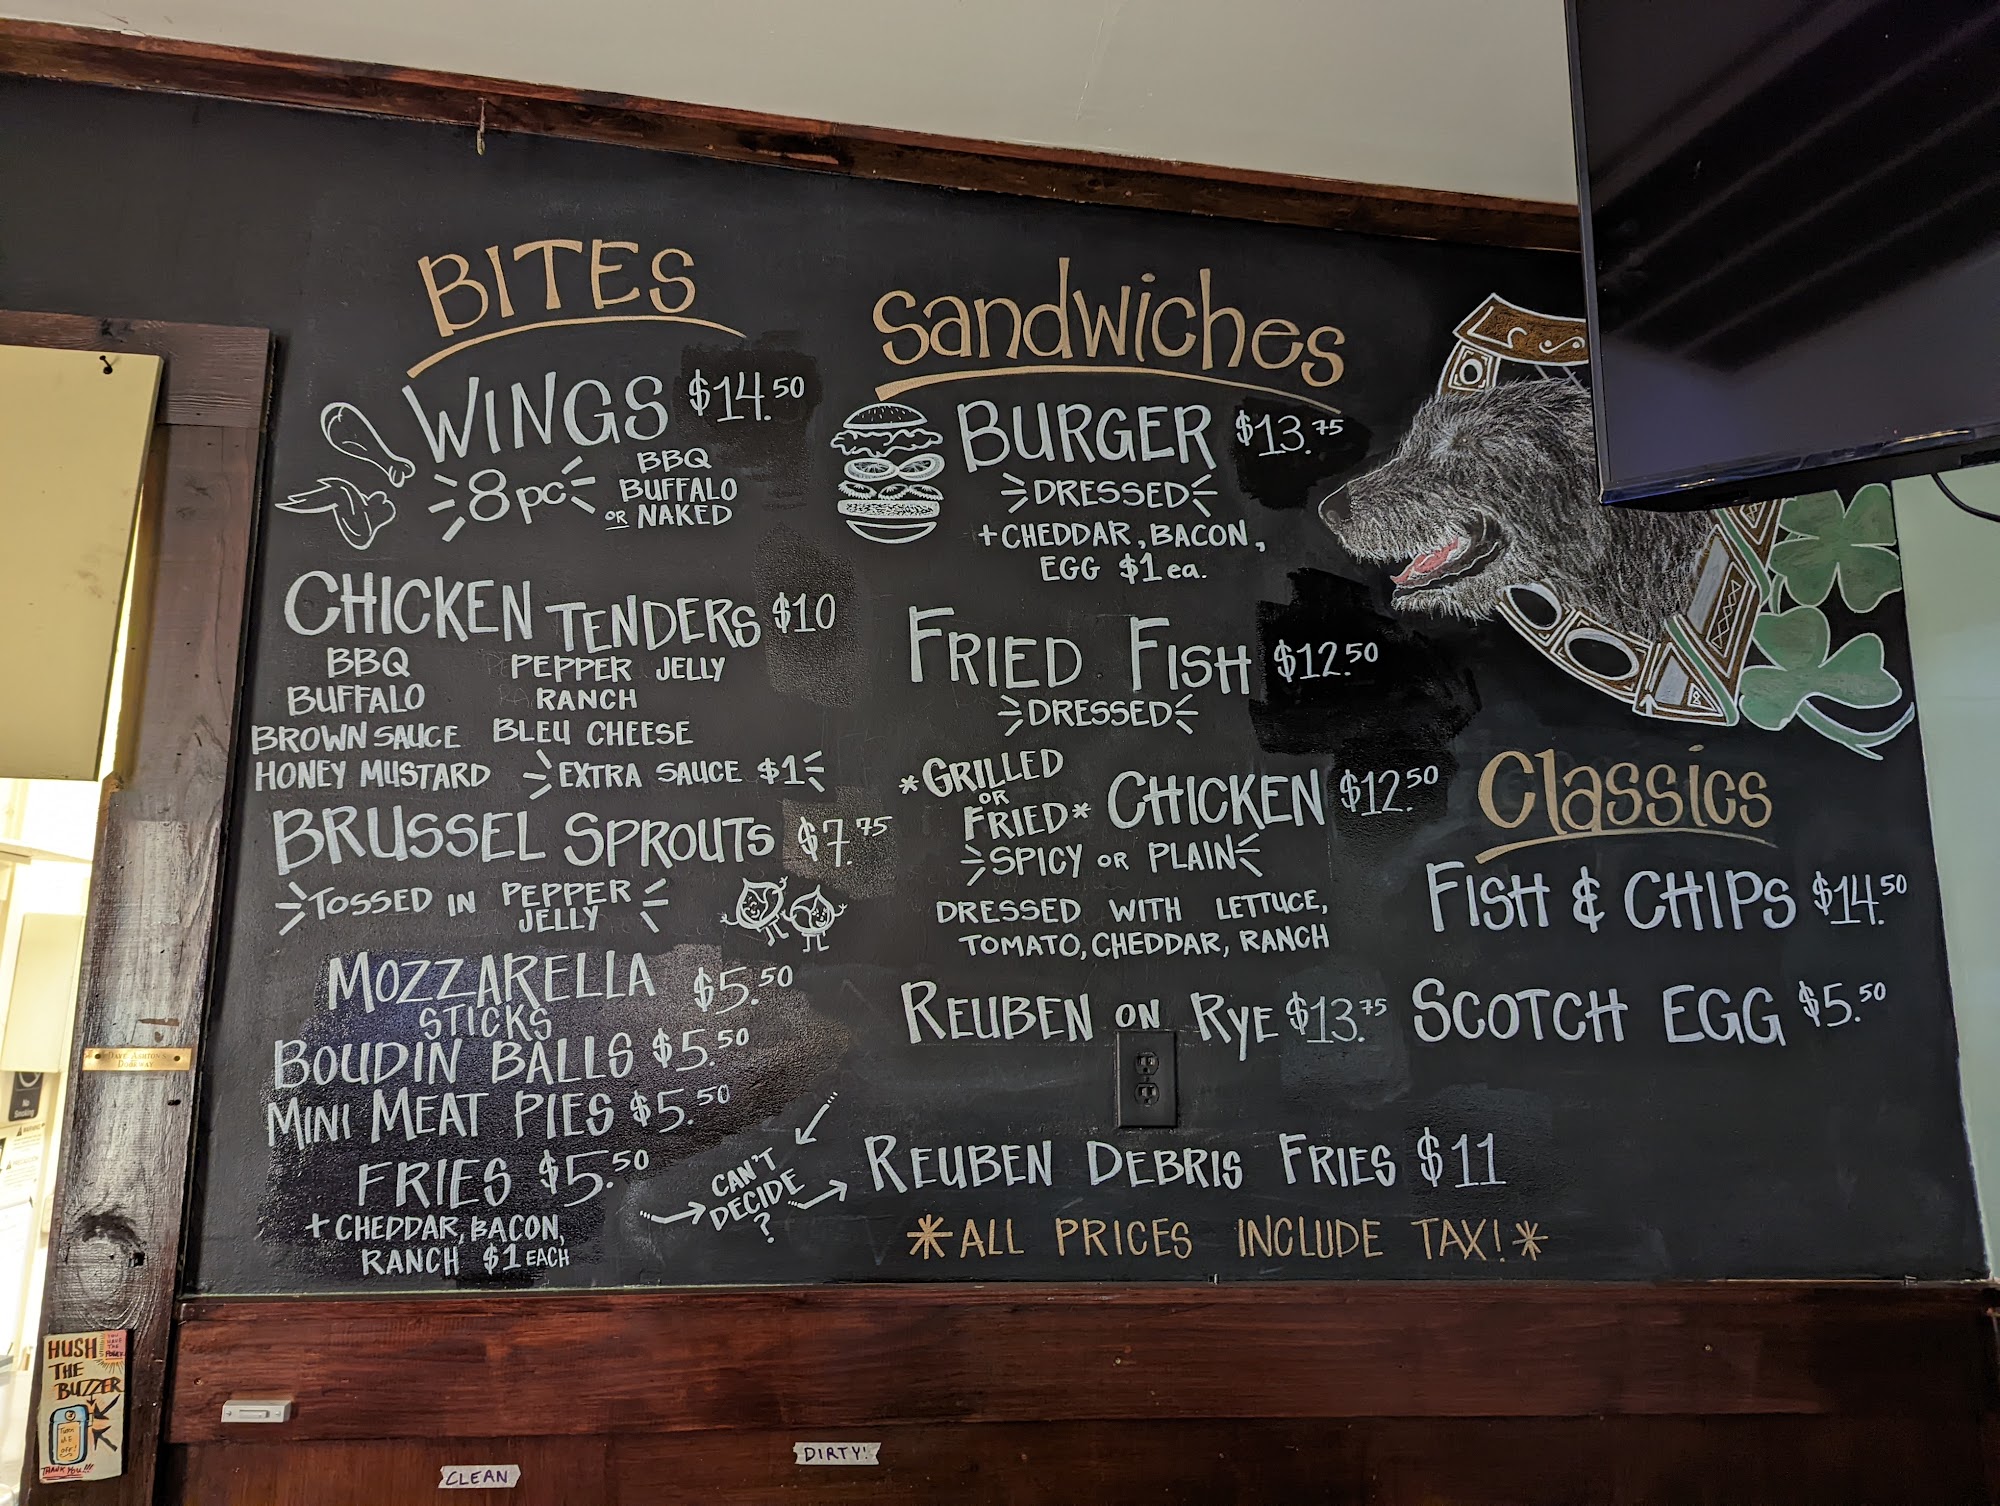 BITES
WINGS $14.50
8pc
BBQ
BUFFALO
OR NAKED
CHICKEN TENDERS $10
BBQ
BUFFALO
BROWN SAUCE
HONEY MUSTARD
PEPPER JELLY
RANCH
BLEU CHEESE
EXTRA SAUCE $1
BRUSSEL SPROUTS $7.75
TOSSED IN PEPPER
JELLY
MOZZARELLA $5.50
STICKS
BOUDIN BALLS $5.50
MINI MEAT PIES $5.50
FRIES $5.50
+ CHEDDAR, BACON,
RANCH $1 EACH
CAN'T
DECIDE
?
Sandwiches
BURGER $13.75
DRESSED
+ CHEDDAR, BACON,
EGG $1 ea.
FRIED FISH $12.50
DRESSED
*GRILLED
OR
FRIED* CHICKEN $12.50
SPICY OR PLAIN
DRESSED WITH LETTUCE,
TOMATO, CHEDDAR, RANCH
REUBEN ON RYE $13.75
REUBEN DEBRIS FRIES $11
*ALL PRICES INCLUDE TAX!*
Classics
FISH & CHIPS $14.50
SCOTCH EGG $5.50
DAVE AARON'S
DOORWAY
No
Smoking
HUSH
THE
BUZZER
YOU
HAVE
THE
POWER
Turn
it
off!
THANK YOU!!!
CLEAN
DIRTY!